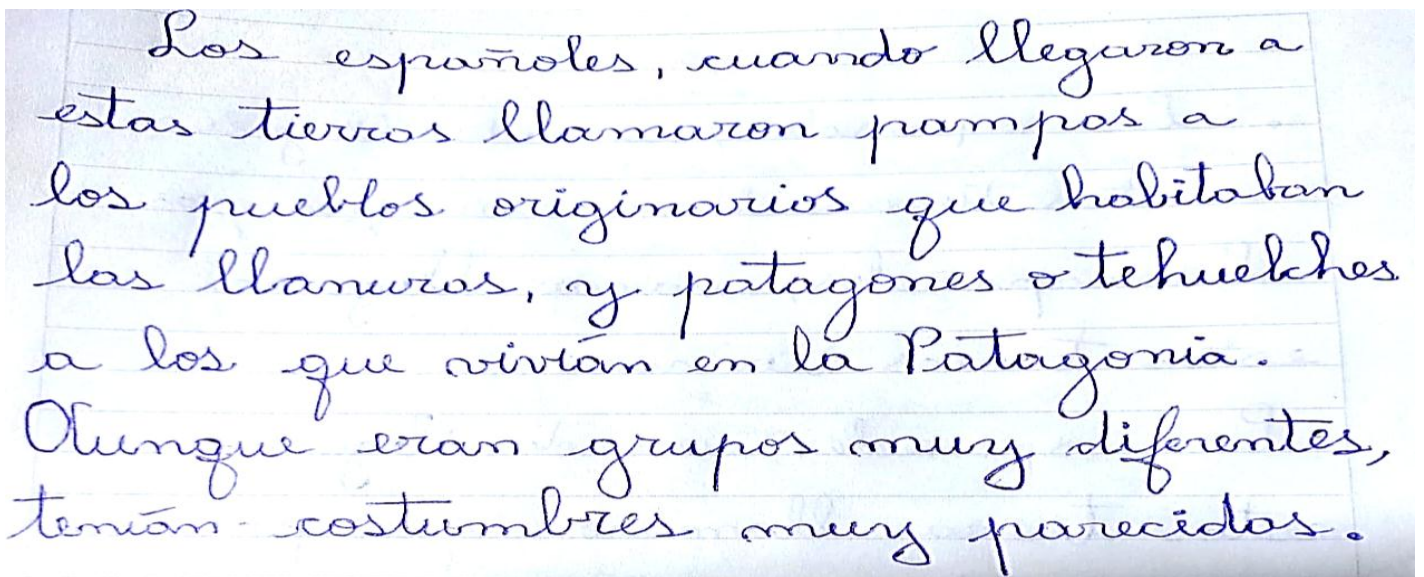 Los españoles, cuando llegaron a
estas tierras llamaron pampas a
los pueblos originarios que habitaban
las llanuras, y patagones o tehuelches
a los que vivían en la Patagonia.
Aunque eran grupos muy diferentes,
tenían costumbres muy parecidas.